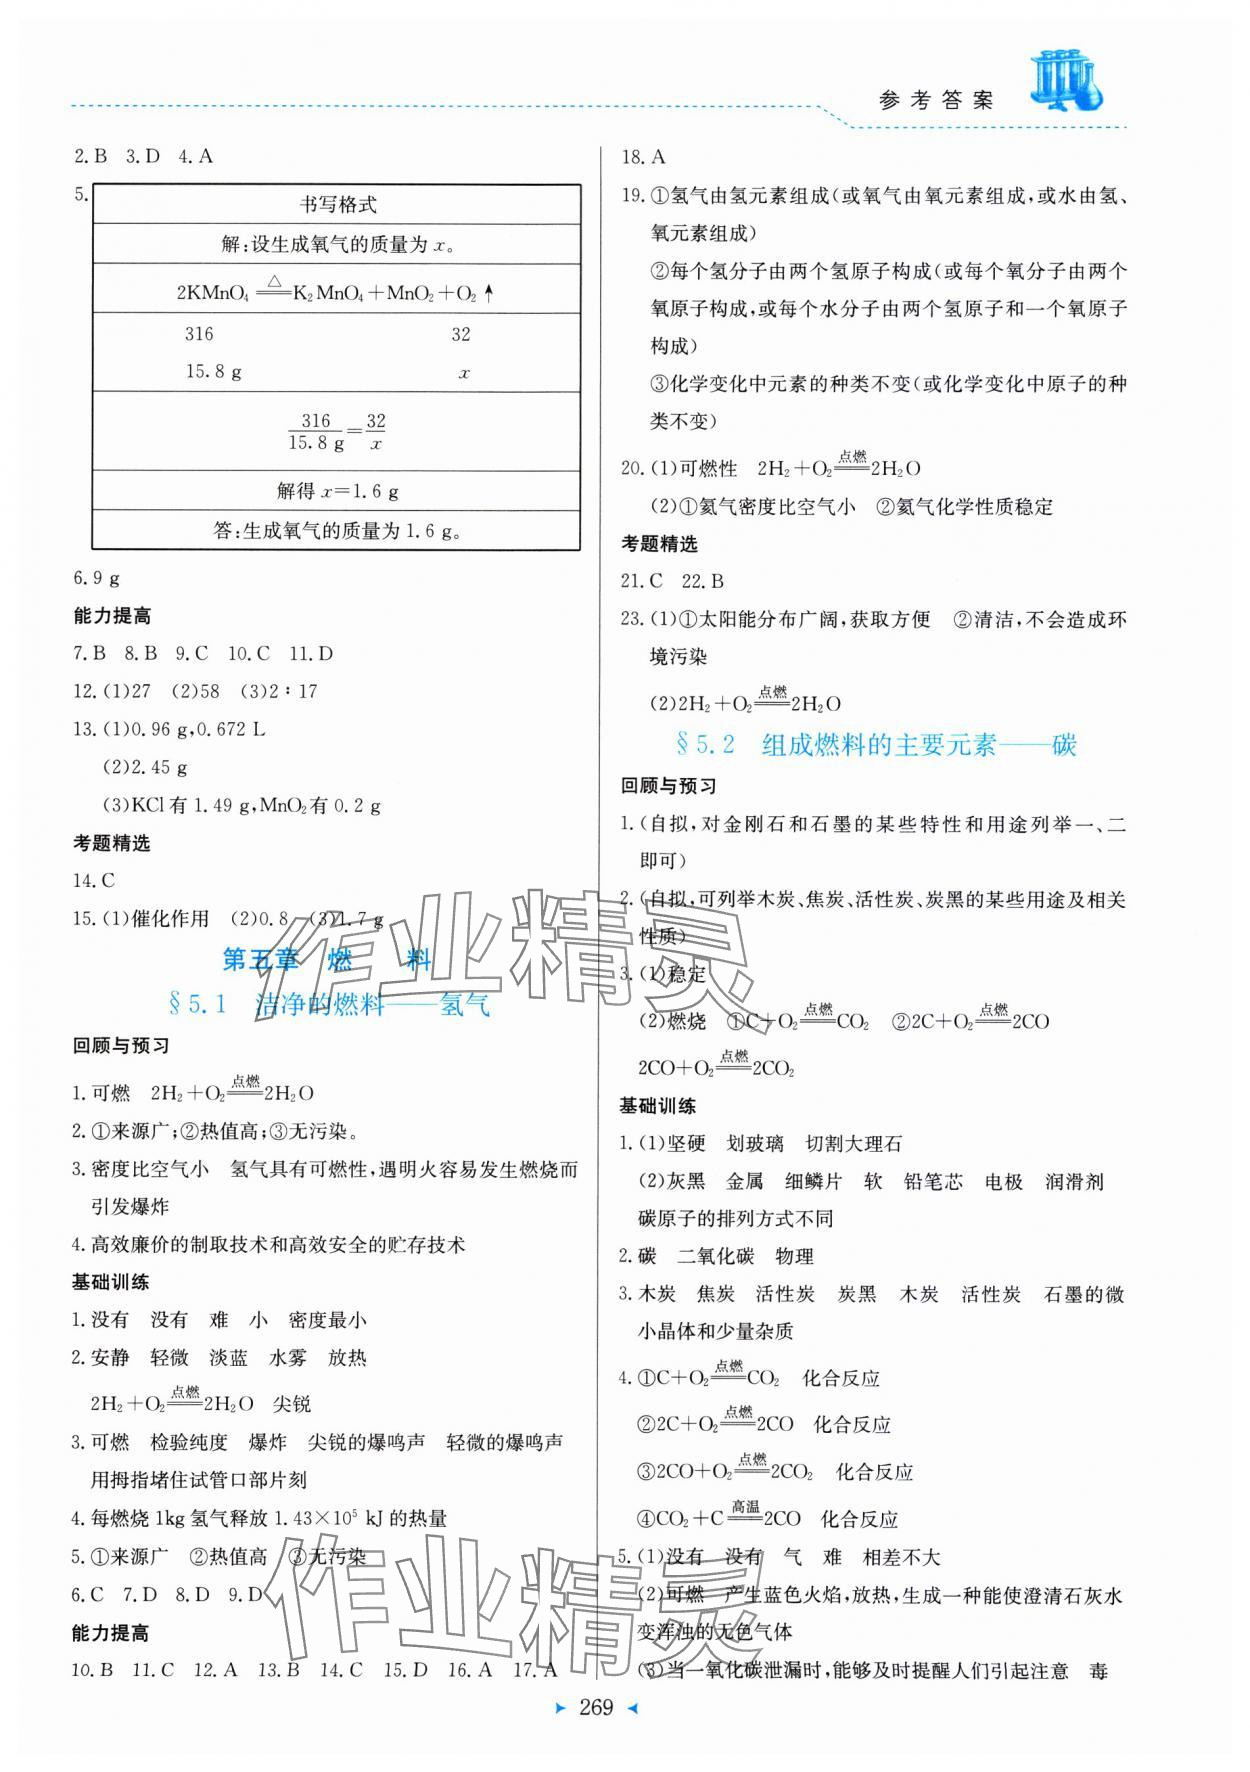 参考答案
2.B　3.D　4.A
5.
书写格式
解:设生成氧气的质量为 x。
2KMnO₄ ==△== K₂MnO₄+MnO₂+O₂↑
316　32
15.8 g　x
316/15.8 g=32/x
解得 x=1.6 g
答:生成氧气的质量为 1.6 g。
6.9 g
能力提高
7.B　8.B　9.C　10.C　11.D
12.(1)27　(2)58　(3)2∶17
13.(1)0.96 g,0.672 L
(2)2.45 g
(3)KCl 有 1.49 g,MnO₂ 有 0.2 g
考题精选
14.C
15.(1)催化作用　(2)0.8　(3)1.7 g
第五章　燃　料
§5.1　洁净的燃料——氢气
回顾与预习
1.可燃　2H₂+O₂ ==点燃== 2H₂O
2.①来源广;②热值高;③无污染。
3.密度比空气小　氢气具有可燃性,遇明火容易发生燃烧而
引发爆炸
4.高效廉价的制取技术和高效安全的贮存技术
基础训练
1.没有　没有　难　小　密度最小
2.安静　轻微　淡蓝　水雾　放热
2H₂+O₂ ==点燃== 2H₂O　尖锐
3.可燃　检验纯度　爆炸　尖锐的爆鸣声　轻微的爆鸣声
用拇指堵住试管口部片刻
4.每燃烧 1kg 氢气释放 1.43×10⁵ kJ 的热量
5.①来源广　②热值高　③无污染
6.C　7.D　8.D　9.D
能力提高
10.B　11.C　12.A　13.B　14.C　15.D　16.A　17.A
18.A
19.①氢气由氢元素组成(或氧气由氧元素组成,或水由氢、
氧元素组成)
②每个氢分子由两个氢原子构成(或每个氧分子由两个
氧原子构成,或每个水分子由两个氢原子和一个氧原子
构成)
③化学变化中元素的种类不变(或化学变化中原子的种
类不变)
20.(1)可燃性　2H₂+O₂ ==点燃== 2H₂O
(2)①氦气密度比空气小　②氦气化学性质稳定
考题精选
21.C　22.B
23.(1)①太阳能分布广阔,获取方便　②清洁,不会造成环
境污染
(2)2H₂+O₂ ==点燃== 2H₂O
§5.2　组成燃料的主要元素——碳
回顾与预习
1.(自拟,对金刚石和石墨的某些特性和用途列举一、二
即可)
2.(自拟,可列举木炭、焦炭、活性炭、炭黑的某些用途及相关
性质)
3.(1)稳定
(2)燃烧　①C+O₂ ==点燃== CO₂　②2C+O₂ ==点燃== 2CO
2CO+O₂ ==点燃== 2CO₂
基础训练
1.(1)坚硬　划玻璃　切割大理石
(2)灰黑　金属　细鳞片　软　铅笔芯　电极　润滑剂
碳原子的排列方式不同
2.碳　二氧化碳　物理
3.木炭　焦炭　活性炭　炭黑　木炭　活性炭　石墨的微
小晶体和少量杂质
4.①C+O₂ ==点燃== CO₂　化合反应
②2C+O₂ ==点燃== 2CO　化合反应
③2CO+O₂ ==点燃== 2CO₂　化合反应
④CO₂+C ==高温== 2CO　化合反应
5.(1)没有　没有　气　难　相差不大
(2)可燃　产生蓝色火焰,放热,生成一种能使澄清石灰水
变浑浊的无色气体
(3)当一氧化碳泄漏时,能够及时提醒人们引起注意　毒
269
作业精灵
作业精灵